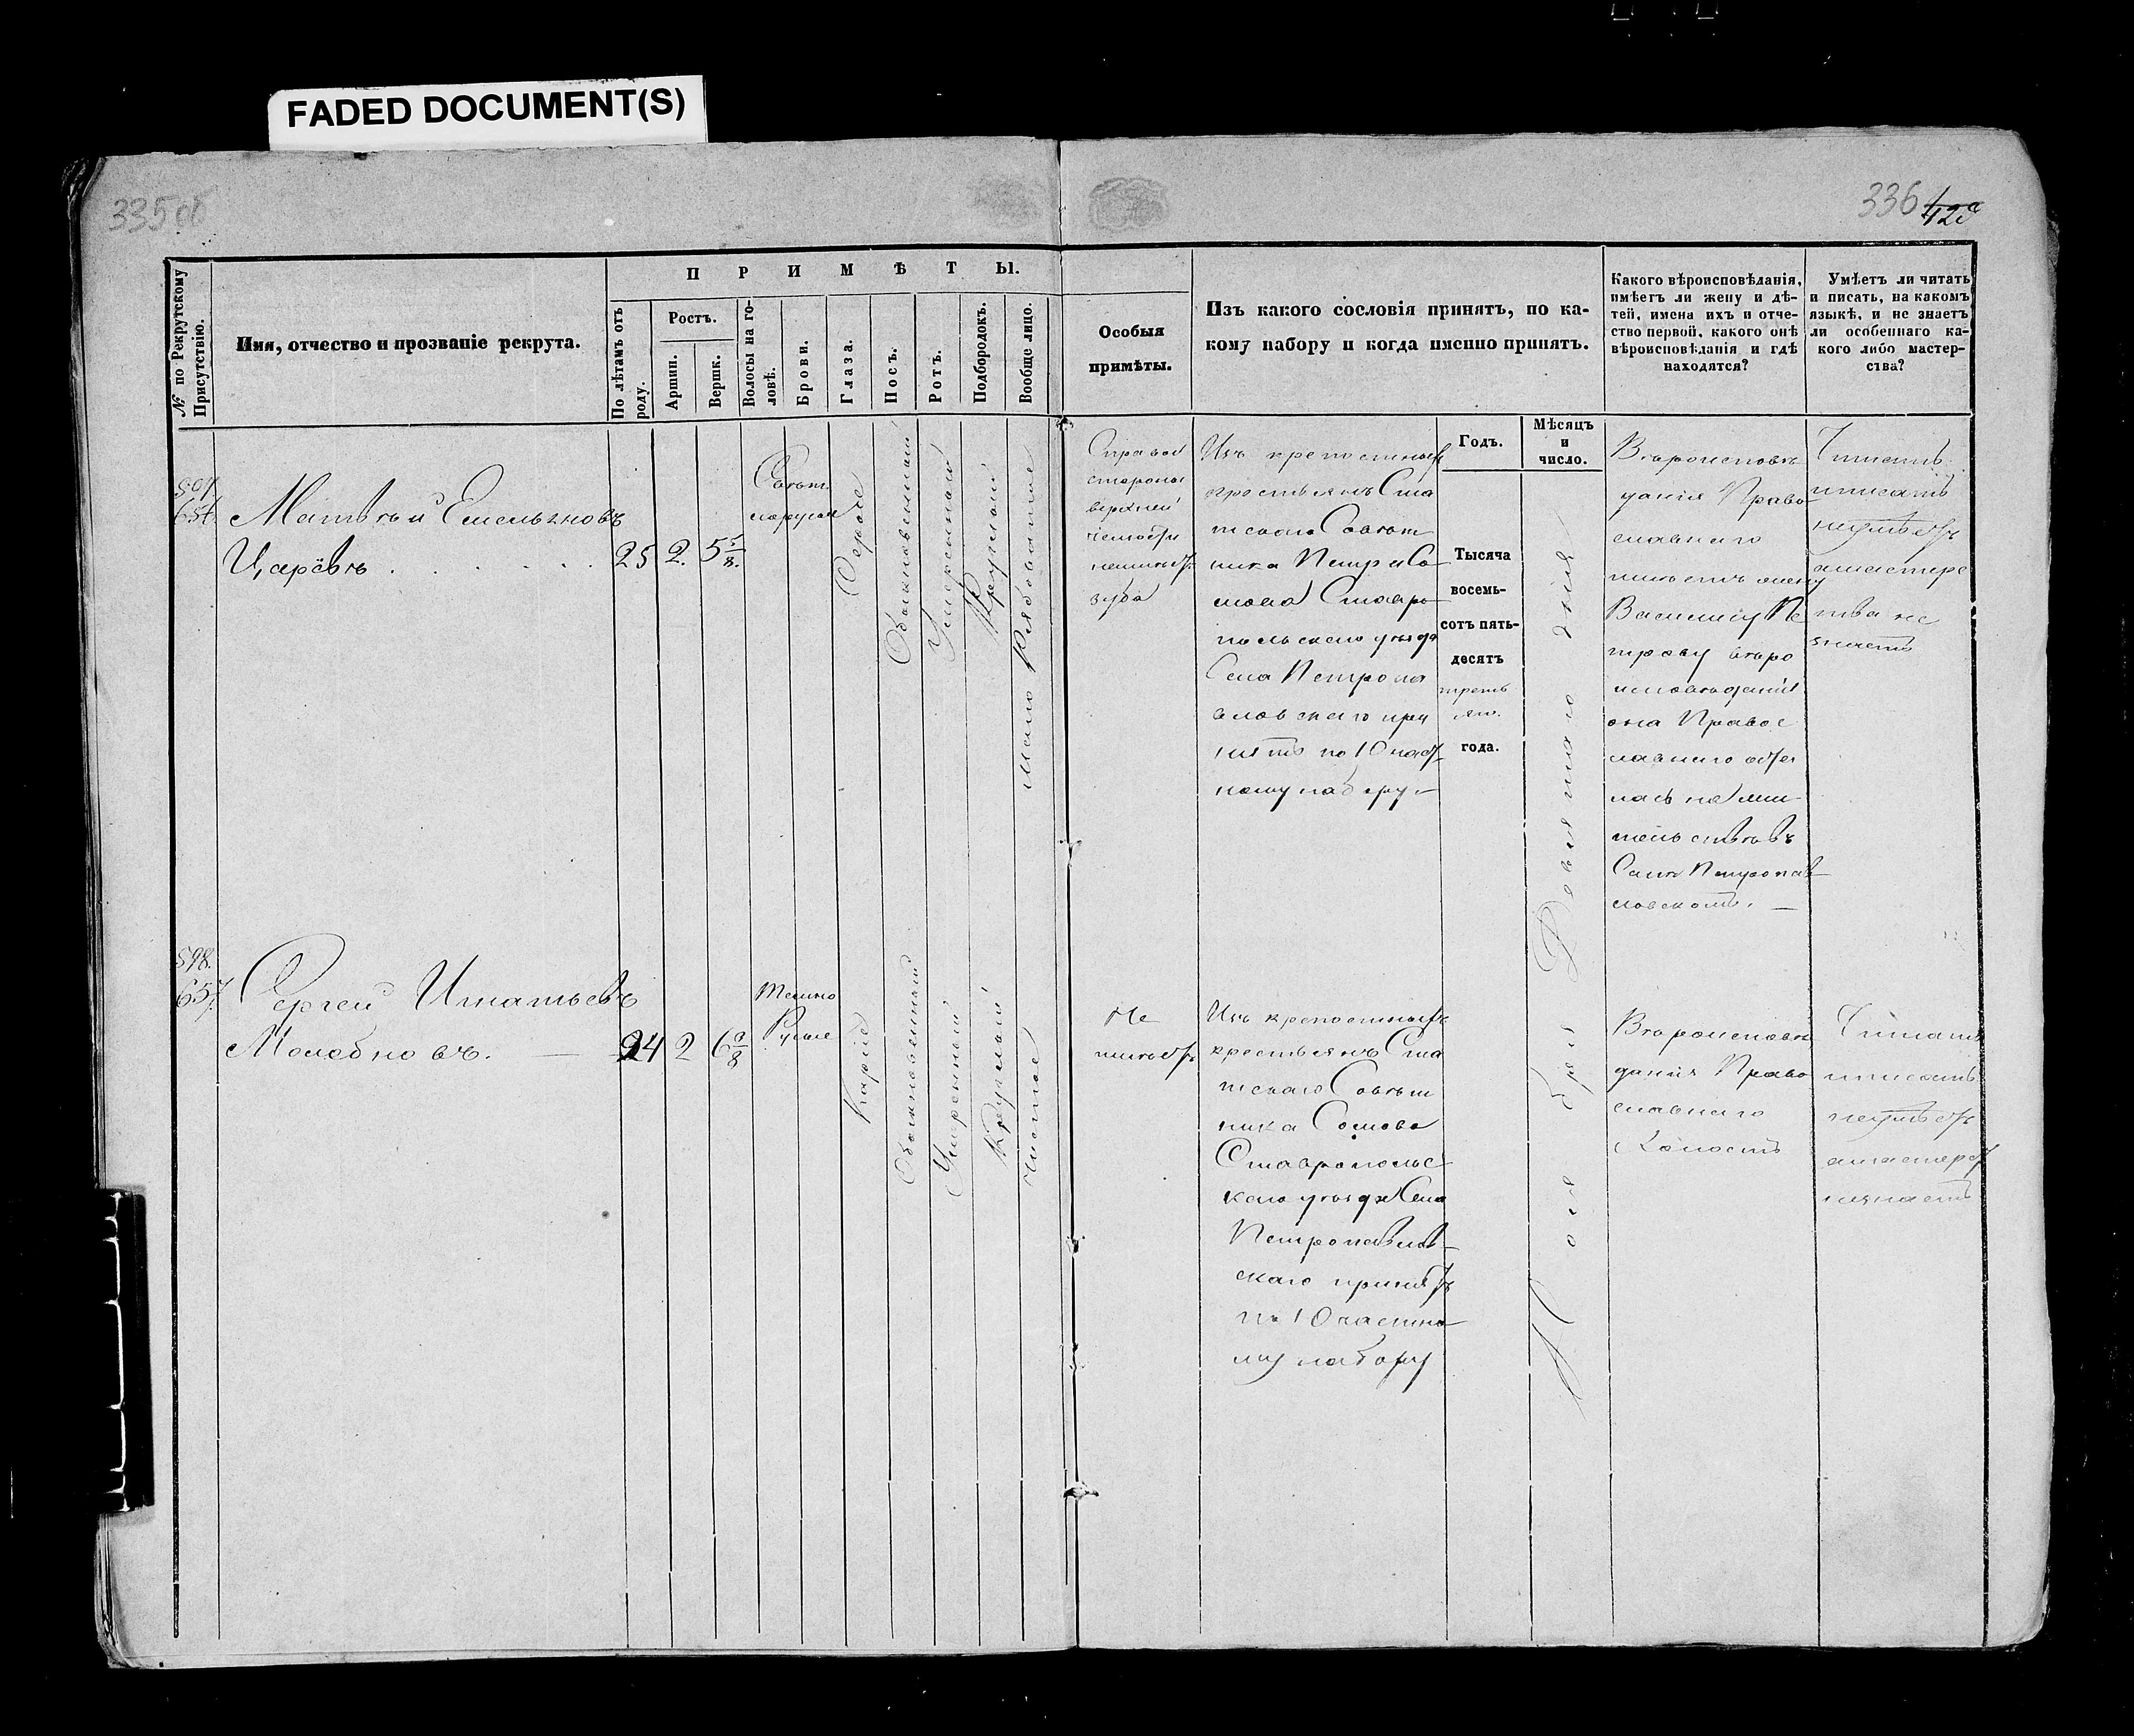 FADED DOCUMENT(S)
335об
336
П Р И М Ѣ Т Ы.
№ по Рекрутскому Присутствію.
Имя, отчество и прозваніе рекрута.
По лѣтамъ отъ роду.
Ростъ.
Аршин.
Вершк.
Волосы на головѣ.
Брови.
Глаза.
Носъ.
Ротъ.
Подбородокъ.
Вообще лицо.
Особыя
примѣты.
Изъ какого сословія принятъ, по ка-
кому набору и когда именно принятъ.
Годъ.
Мѣсяцъ
и
число.
Какого вѣроисповѣданія,
имѣетъ ли жену и дѣ-
тей, имена ихъ и отче-
ство первой, какого онѣ
вѣроисповѣданія и гдѣ
находятся?
Умѣетъ ли читать
и писать, на какомъ
языкѣ, и не знаетъ
ли особеннаго ка-
кого либо мастер-
ства?
Матвѣй Емельяновъ
Царёвъ
25
2.
5 5/8.
Свѣт
лорусые
Серые
Обыкновенный
Умеренный
Круглый
Мало рябоватое
С правой
стороны
верхней
челюсти
неимѣетъ
зуба
Изъ крепостныхъ
крестьянъ Ста
тскаго Совѣт
ника Петра Со
мова Ставро
польскаго уѣзда
Села Петропа
вловскаго при
нятъ по 10 част
ному набору
Тысяча
восемь-
сотъ пять-
десятъ
треть
яго.
года.
Ноября Девятаго дня
Вѣроисповѣ
данія Право
славнаго
имѣетъ жену
Василису Пе
трову вѣро
исповѣданія
она Правос
лавнаго оста
лась на жи
тельствѣ въ
Селѣ Петропав
ловскомъ.
Читать
писать
неумѣетъ
амастерс
тва не
знаетъ
598.
657.
Сергей Игнатьевъ
Молебновъ.
24
2
6 3/8
Темно
Русые
Карие
Обыкновенный
Умеренный
Круглый
Чистое
Не
имѣетъ
Изъ крепостныхъ
крестьянъ Ста
тскаго Совѣт
ника Сомова
Ставропольс
каго уѣзда Села
Петропавлов
скаго принятъ
по 10 частно
му набору
Вѣроисповѣ
данія Право
славнаго
Холостъ
Читать
писать
неумѣетъ
амастерст
незнаетъ